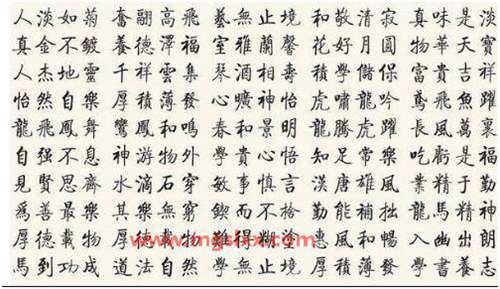 人淡如菊 奮翮高飛 藝無止境 和敬清寂 真味是淡
真金不鍍 養德澤福 室雅蘭馨 花好月圓 物華天寶
人杰地靈 千祥雲集 琴酒相壽 積學儲保 富貴吉祥
怡然自樂 厚積薄發 心曠神怡 虎嘯龍吟 鳶飛魚躍
龍飛鳳舞 鸞鳳和鳴 春和景明 龍騰虎躍 長風萬裏
自强不息 神游物外 學貴心悟 知足常樂 吃虧是福
見賢思齊 水滴石穿 敏事慎言 漢唐雄風 業精于勤
爲善最樂 其樂無窮 鍥而不捨 勤能補拙 龍馬精神
厚德載物 厚德 物 難得糊塗 惠風和暢 入幽出朗
馬到功成 道法自然 學無止境 厚積薄發 學書養志